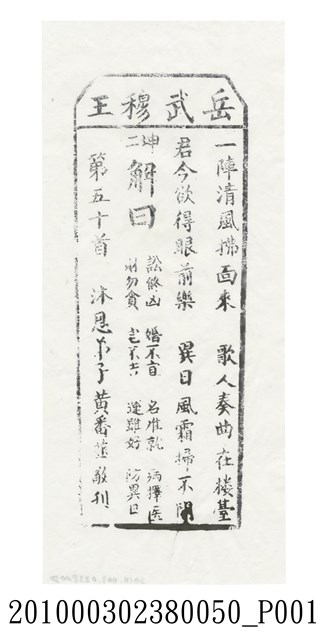 岳武穆王
一陣清風拂面來　歌人奏曲在楼臺
君今欲得眼前樂　異日風霜掃不開
坤二
解曰
訟終凶　婚不宜　名准就　病擇医
財勿貪　宅不吉　運雖好　防異日
第五十首　沐恩弟子黃番𦽦敬刊
201000302380050_P001